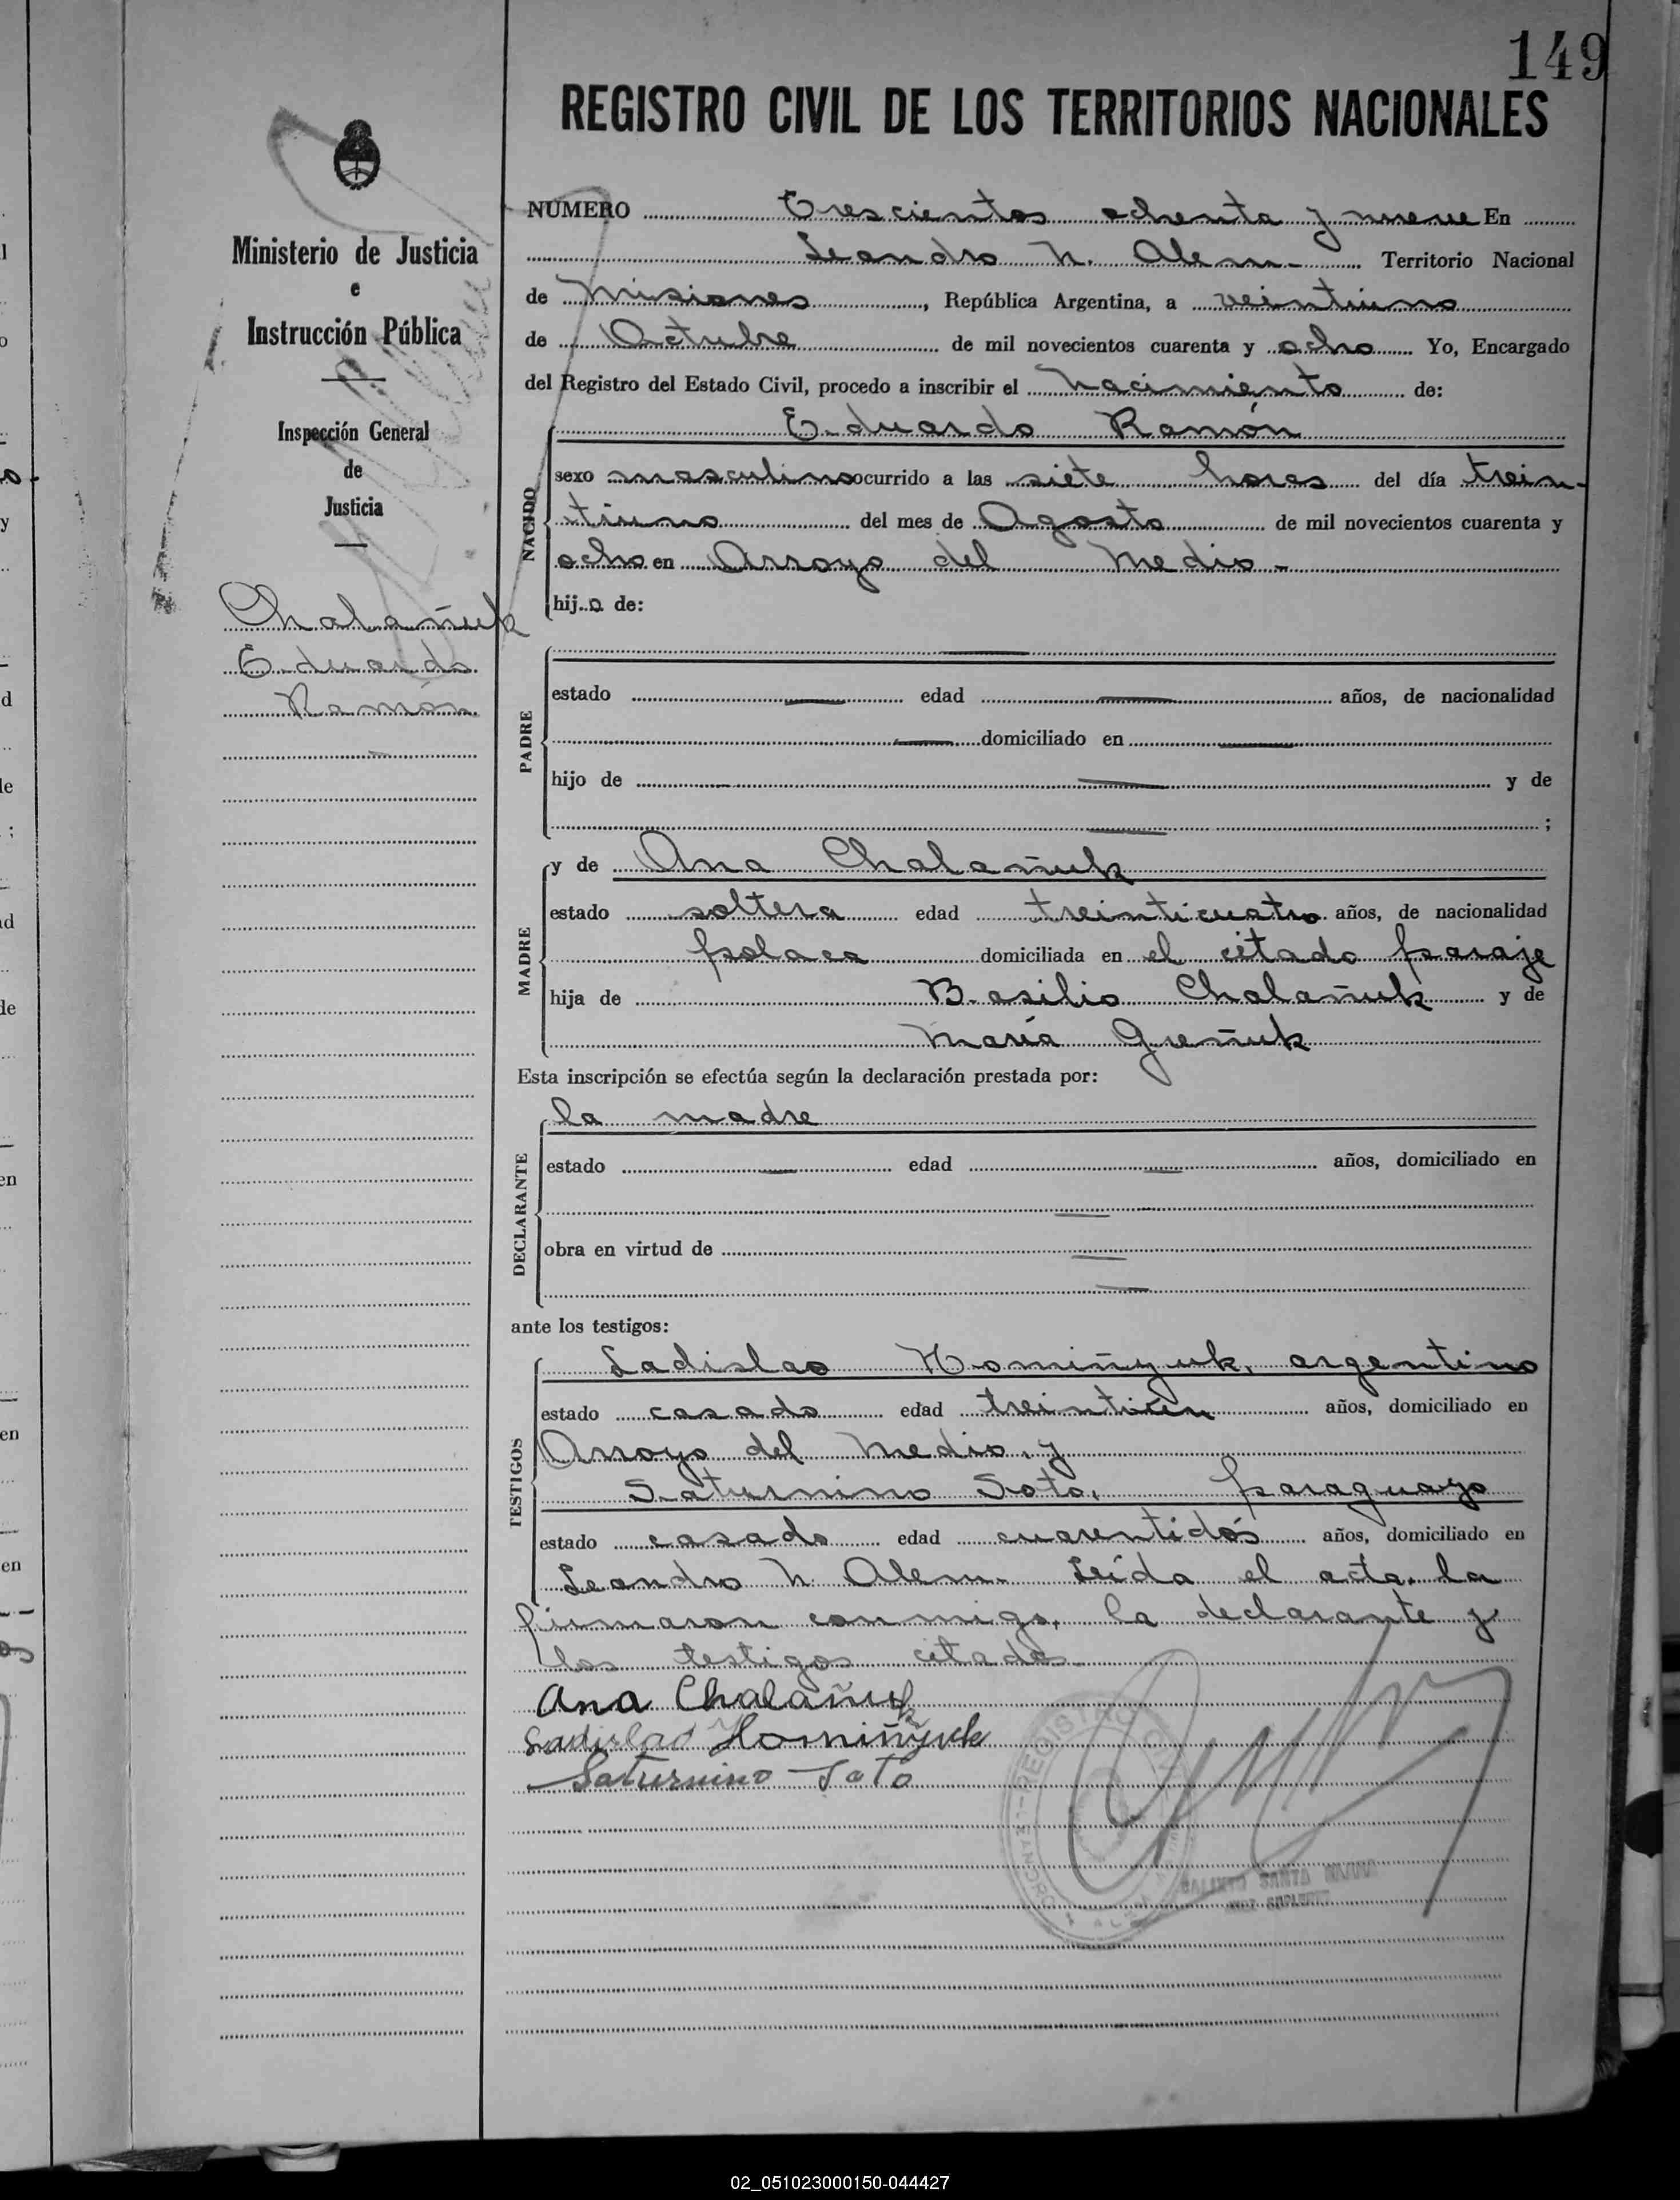 149
REGISTRO CIVIL DE LOS TERRITORIOS NACIONALES
Ministerio de Justicia
e
Instrucción Pública
Inspección General
de
Justicia
Chalañuk
Eduardo
Ramón
NUMERO Trescientos ochenta y nueve En
Leandro N. Alem - Territorio Nacional
de Misiones, República Argentina, a veintiuno
de Octubre de mil novecientos cuarenta y ocho Yo, Encargado
del Registro del Estado Civil, procedo a inscribir el nacimiento de:
Eduardo Ramón
NACIDO
sexo masculino ocurrido a las siete horas del día trein-
tiuno del mes de Agosto de mil novecientos cuarenta y
ocho en Arroyo del Medio -
hijo de:
PADRE
estado — edad — años, de nacionalidad
— domiciliado en —
hijo de — y de
— ;
MADRE
y de Ana Chalañuk
estado soltera edad treinticuatro años, de nacionalidad
polaca domiciliada en el citado paraje
hija de Basilio Chalañuk y de
María Greñuk
Esta inscripción se efectúa según la declaración prestada por:
DECLARANTE
la madre
estado — edad — años, domiciliado en
—
obra en virtud de —
—
ante los testigos:
TESTIGOS
Ladislao Homiñyuk, argentino
estado casado edad treintiún años, domiciliado en
Arroyo del Medio, y
Saturnino Soto, paraguayo
estado casado edad cuarentidós años, domiciliado en
Leandro N. Alem. Leída el acta, la
firmaron conmigo, la declarante y
los testigos citados.
Ana Chalañuk
Ladislao Homiñyuk
Saturnino Soto
REGISTRO CIVIL
02_051023000150-044427